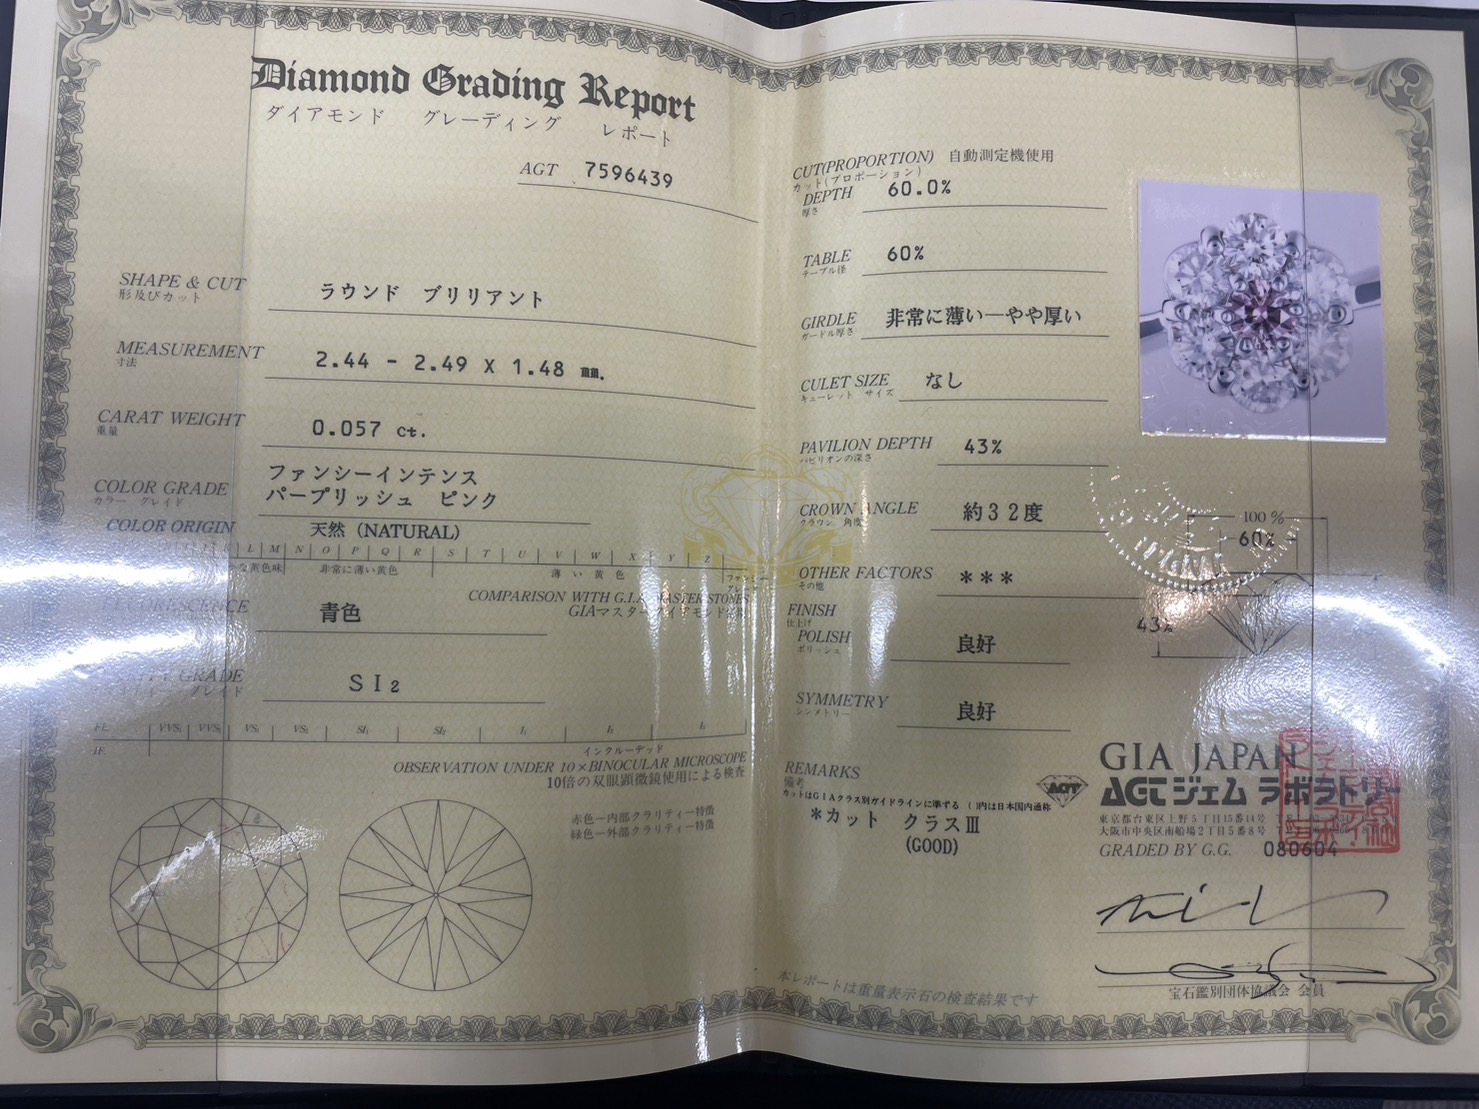 Diamond Grading Report
ダイアモンド グレーディング レポート
AGT 7596439
SHAPE & CUT
形及びカット
ラウンド ブリリアント
MEASUREMENT
寸法
2.44 - 2.49 X 1.48 mm.
CARAT WEIGHT
重量
0.057 ct.
COLOR GRADE
カラー グレイド
ファンシーインテンス
パープリッシュ ピンク
COLOR ORIGIN
天然 (NATURAL)
K L M N O P Q R S T U V W X Y Z
な黄色味 非常に薄い黄色 薄い黄色 ファンシー
COMPARISON WITH G.I.A. MASTER STONES
GIAマスターダイアモンド
FLUORESCENCE
青色
CLARITY GRADE
クラリティー グレイド
SI2
FL. VVS1 VVS2 VS1 VS2 SI1 SI2 I1 I2 I3
IF.
インクルーデッド
OBSERVATION UNDER 10×BINOCULAR MICROSCOPE
10倍の双眼顕微鏡使用による検査
赤色―内部クラリティー特徴
緑色―外部クラリティー特徴
CUT(PROPORTION) 自動測定機使用
カット(プロポーション)
DEPTH
厚さ
60.0%
TABLE
テーブル径
60%
GIRDLE
ガードル厚さ
非常に薄い―やや厚い
CULET SIZE
キューレット サイズ
なし
PAVILION DEPTH
パビリオンの深さ
43%
CROWN ANGLE
クラウン 角度
約32度
OTHER FACTORS
その他
***
FINISH
仕上げ
POLISH
ポリッシュ
良好
SYMMETRY
シンメトリー
良好
REMARKS
備考
カットはGIAクラス別ガイドラインに準ずる ( )内は日本国内通称
*カット クラスⅢ
(GOOD)
本レポートは重量表示石の検査結果です
100%
60%
43%
GIA JAPAN
AGT
AGTジェム ラボラトリー
東京都台東区上野5丁目15番14号
大阪市中央区南船場2丁目5番8号
GRADED BY G.G. 080604
宝石鑑別団体協議会 会員